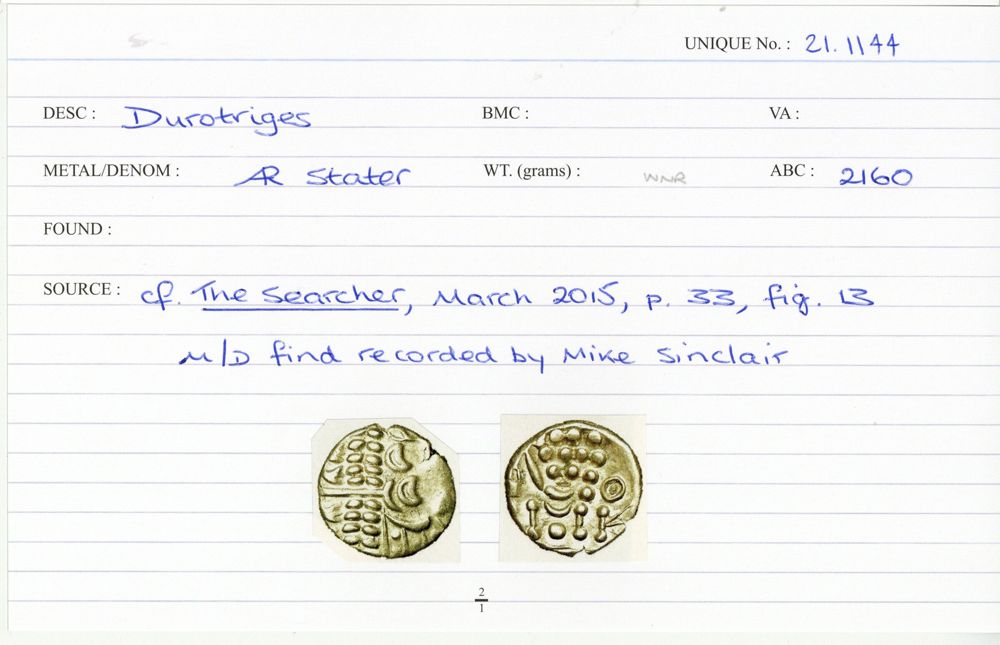 UNIQUE No. : 21.1144
DESC : Durotriges BMC : VA :
METAL/DENOM : AR Stater WT. (grams) : WNR ABC : 2160
FOUND :
SOURCE : cf. The Searcher, March 2015, p. 33, fig. 13
M/D find recorded by Mike Sinclair
2
1